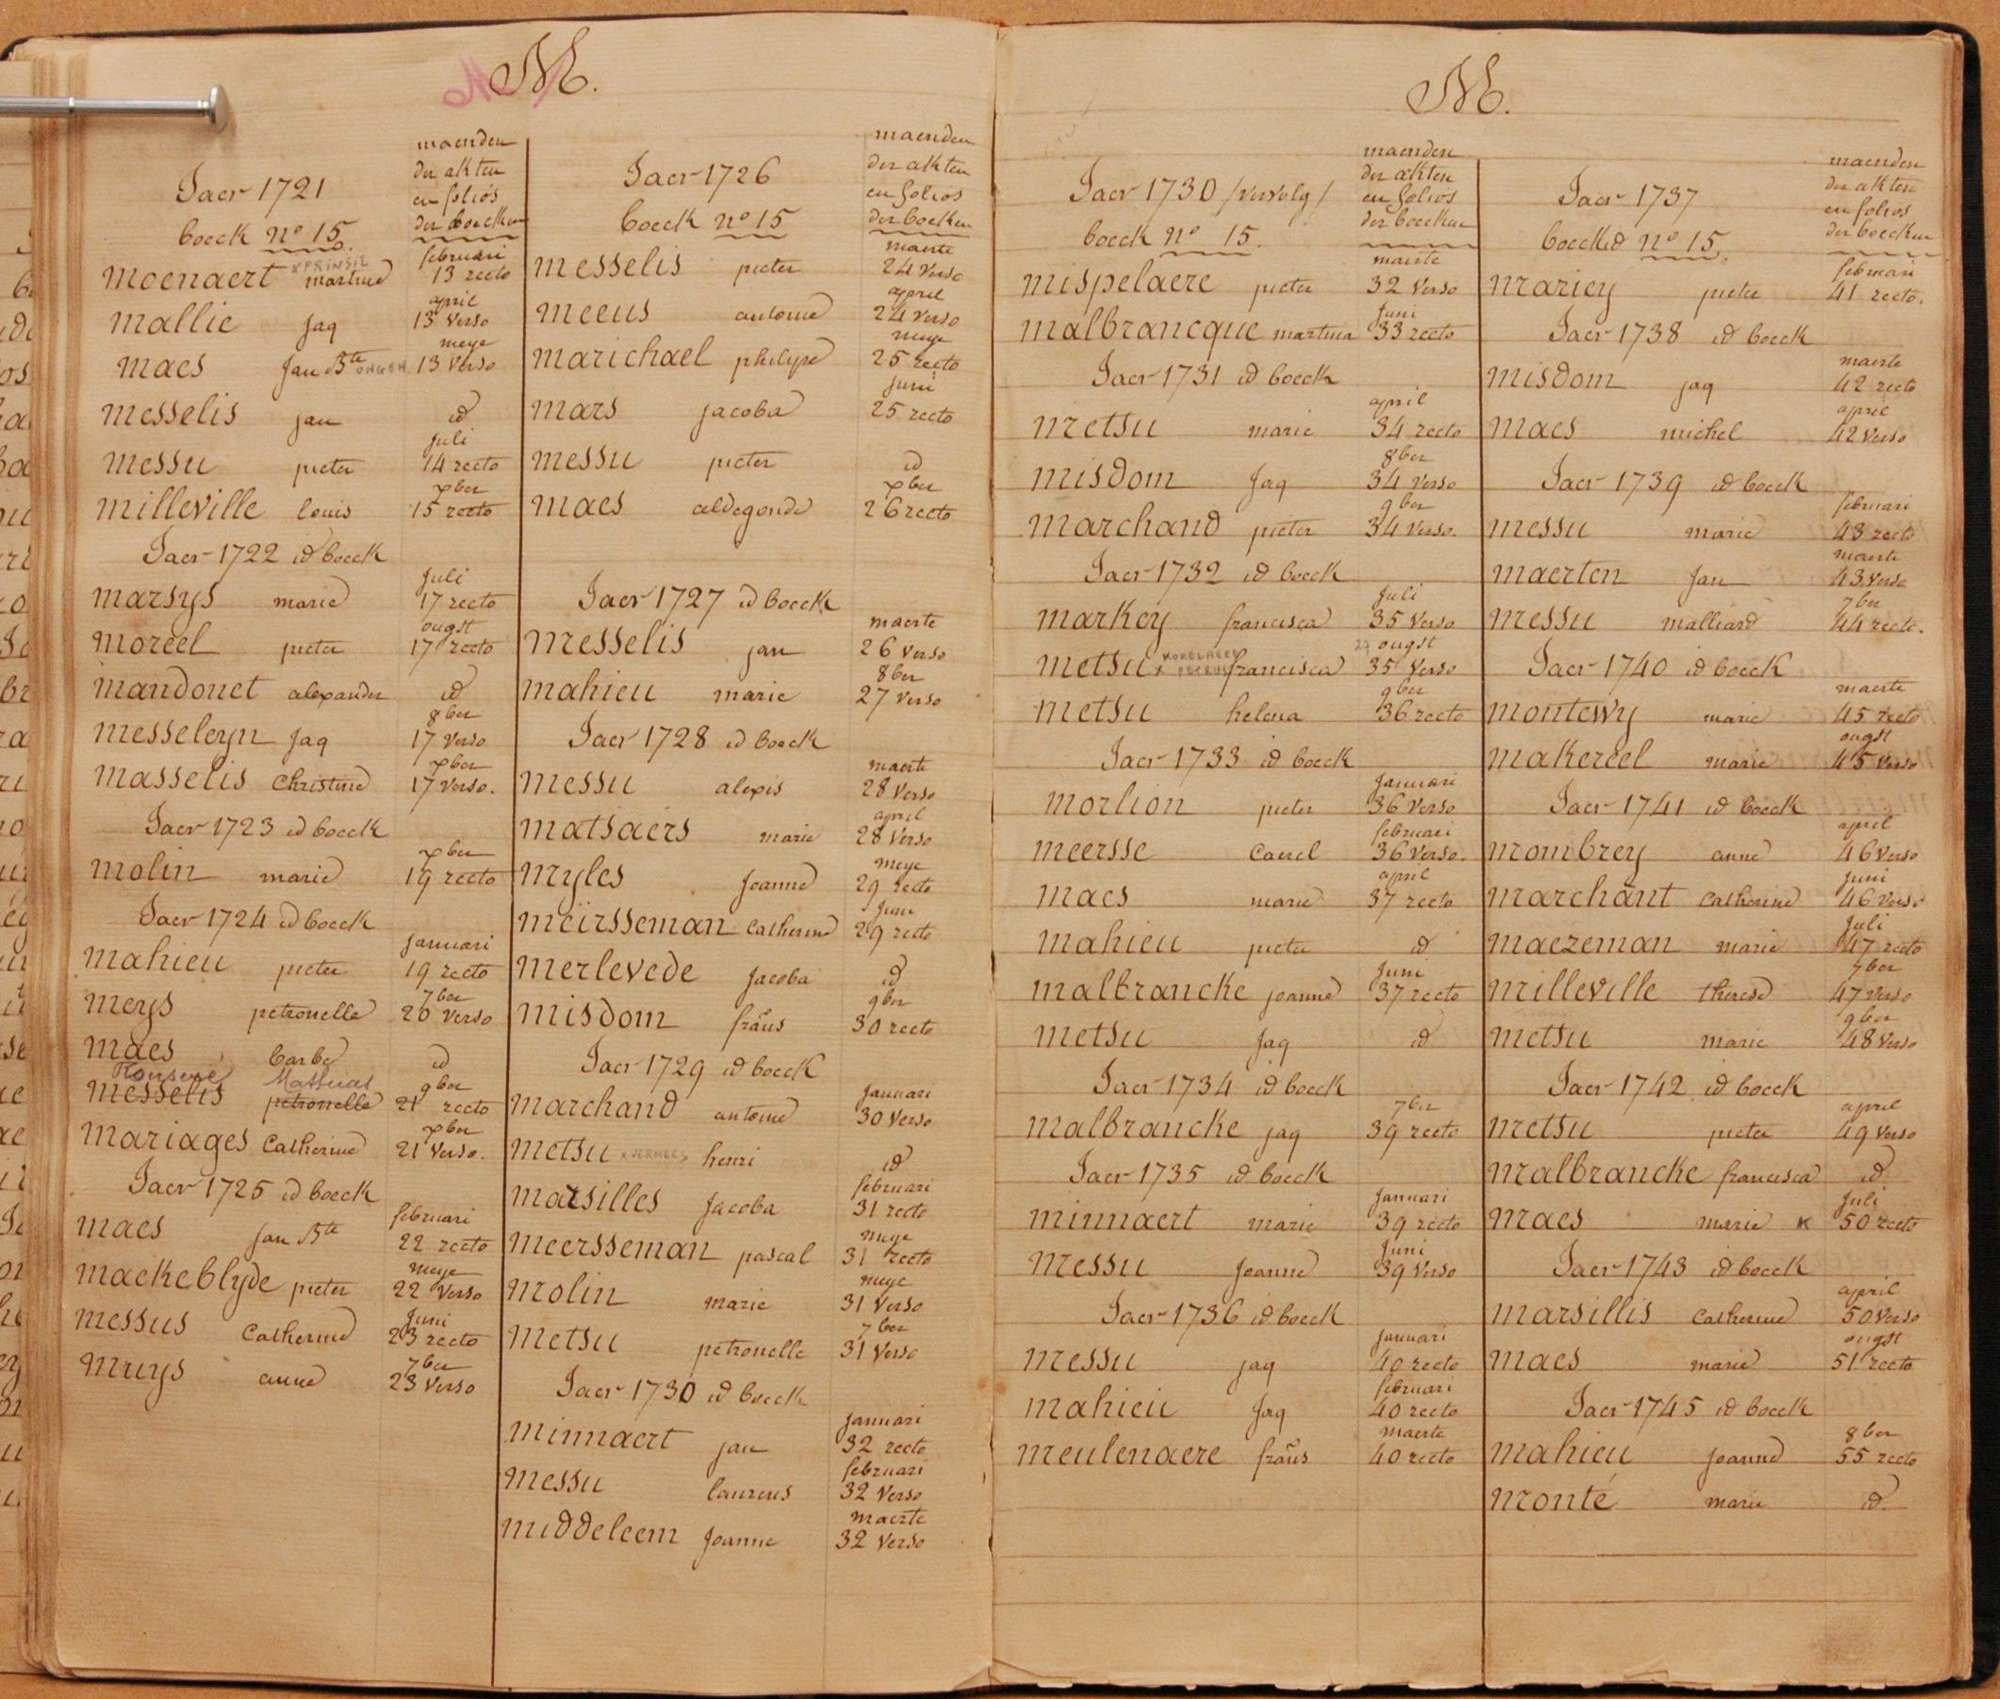 M.
Jaer 1721
boeck nº 15.
maenden
der akten
en folios
der boecken
februari
moenaert martine 13 recto
x PRINSIE
april
mallie jaq 13 verso
meye
maes jan Bte 13 verso
messelis jan id
juli
messu pieter 14 recto
xber
milleville louis 15 recto
Jaer 1722 id boeck
juli
marsys marie 17 recto
ougst
moreel pieter 17 recto
mandouet alexander id
8ber
messeleyn jaq 17 verso
xber
masselis Christine 17 verso.
Jaer 1723 id boeck
xber
molin marie 19 recto
Jaer 1724 id boeck
januari
mahieu pieter 19 recto
7ber
meys petronelle 20 verso
maes barbe id
Mathias
9ber
messelis petronelle 21 recto
xber
mariages Catherine 21 verso.
Jaer 1725 id boeck
februari
maes jan Bte 22 recto
meye
maekeblyde pieter 22 verso
juni
messus Catherine 23 recto
7ber
mruys anne 23 verso
Jaer 1726
boeck nº 15
maenden
der akten
en folios
der boecken
maerte
messelis pieter 24 verso
april
meeus antoine 24 verso
meye
marichael philype 25 recto
juni
mars jacoba 25 recto
messu pieter id
xber
maes aldegonde 26 recto
Jaer 1727 id boeck
maerte
messelis jan 26 verso
8ber
mahieu marie 27 verso
Jaer 1728 id boeck
maerte
messu alexis 28 verso
april
matsaers marie 28 verso
meye
myles joanne 29 recto
juni
meirsseman Catherine 29 recto
merlevede jacoba id
9ber
misdom frans 30 recto
Jaer 1729 id boeck
januari
marchand antoine 30 verso
metsu henri id
februari
marsilles jacoba 31 recto
meye
meersseman pascal 31 recto
meye
molin marie 31 verso
7ber
metsu petronelle 31 verso
Jaer 1730 id boeck
januari
minnaert jan 32 recto
februari
messu laurens 32 verso
maerte
middeleem joanne 32 verso
M.
Jaer 1730 /vervolg/
boeck nº 15.
maenden
der akten
en folios
der boecken
maerte
mispelaere pieter 32 verso
juni
malbrancque martina 33 recto
Jaer 1731 id boeck
april
metsu marie 34 recto
8ber
misdom jaq 34 verso
9ber
marchand pieter 34 verso.
Jaer 1732 id boeck
juli
markey francisca 35 verso
29 ougst
metsu x francisca 35 verso
9ber
metsu helena 36 recto
Jaer 1733 id boeck
januari
morlion pieter 36 verso
februari
meersse Carel 36 verso.
april
maes marie 37 recto
mahieu pieter id
juni
malbrancke joanne 37 recto
metsu jaq id
Jaer 1734 id boeck
7ber
malbrancke jaq 39 recto
Jaer 1735 id boeck
januari
minnaert marie 39 recto
juni
messu joanne 39 verso
Jaer 1736 id boeck
januari
messu jaq 40 recto
februari
mahieu jaq 40 recto
maerte
meulenaere frans 40 recto
Jaer 1737
boecked nº 15.
maenden
der akten
en folios
der boecken
februari
mariey pieter 41 recto.
Jaer 1738 id boeck
maerte
misdom jaq 42 recto
april
maes michel 42 verso
Jaer 1739 id boeck
februari
messu marie 43 recto
maerte
maerten jan 43 verso
7ber
messu malliard 44 recto.
Jaer 1740 id boeck
maerte
montewy marie 45 recto
ougst
makereel marie 45 verso
Jaer 1741 id boeck
april
mombrey anne 46 verso
juni
marchant Catherine 46 verso
juli
maezeman marie 47 recto
7ber
milleville therese 47 verso
9ber
metsu marie 48 verso
Jaer 1742 id boeck
april
metsu pieter 49 verso
malbrancke francisca id
juli
maes marie x 50 recto
Jaer 1743 id boeck
april
marsillis Catherine 50 verso
ougst
maes marie 51 recto
Jaer 1745 id boeck
8ber
mahieu joanne 55 recto
monté marie id.